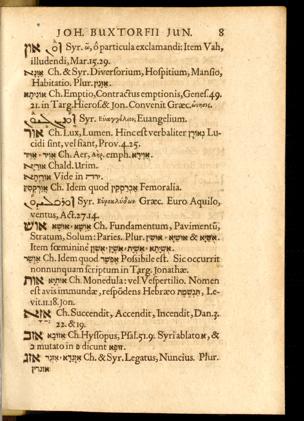 JOH. BUXTORFII JUN. 8
און Syr. ὦ, ὁ particula exclamandi: Item Vah,
illudendi, Mar. 15. 29.
אונא Ch. & Syr. Diversorium, Hospitium, Mansio,
Habitatio. Plur. אונין
אוניתא Ch. Emptio, Contractus emptionis, Genes. 49.
21. in Targ. Hieros. & Jon. Convenit Græc.
Syr. Εὐαγγέλιον, Euangelium.
אור Ch. Lux, Lumen. Hinc est verbaliter Lu-
cidi sint, vel fiant, Prov. 4. 25.
אויר Ch. Aer, emph. אוירא
Chald. Urim.
Vide in ירה
Ch. Idem quod Femoralia.
Syr. Εὐροκλύδων Græc. Euro Aquilo,
ventus, Act. 27. 14.
אוש Ch. Fundamentum, Pavimentū,
Stratum, Solum: Paries. Plur. אושין &
Item fœmininè
אושר Ch. Idem quod אפשר Possibile est. Sic occurrit
nonnunquam scriptum in Targ. Jonathæ.
אות Ch. Monedula: vel Vespertilio. Nomen
est avis immundæ, respōdens Hebræo תנשמת Le-
vit. 11. 18. Jon.
אזא Ch. Succendit, Accendit, Incendit, Dan. 3.
22. & 19.
אזב Ch. Hyssopus, Psal. 51. 9. Syri ablato א, &
ב mutato in פ dicunt זופא
אזג Ch. & Syr. Legatus, Nuncius. Plur.